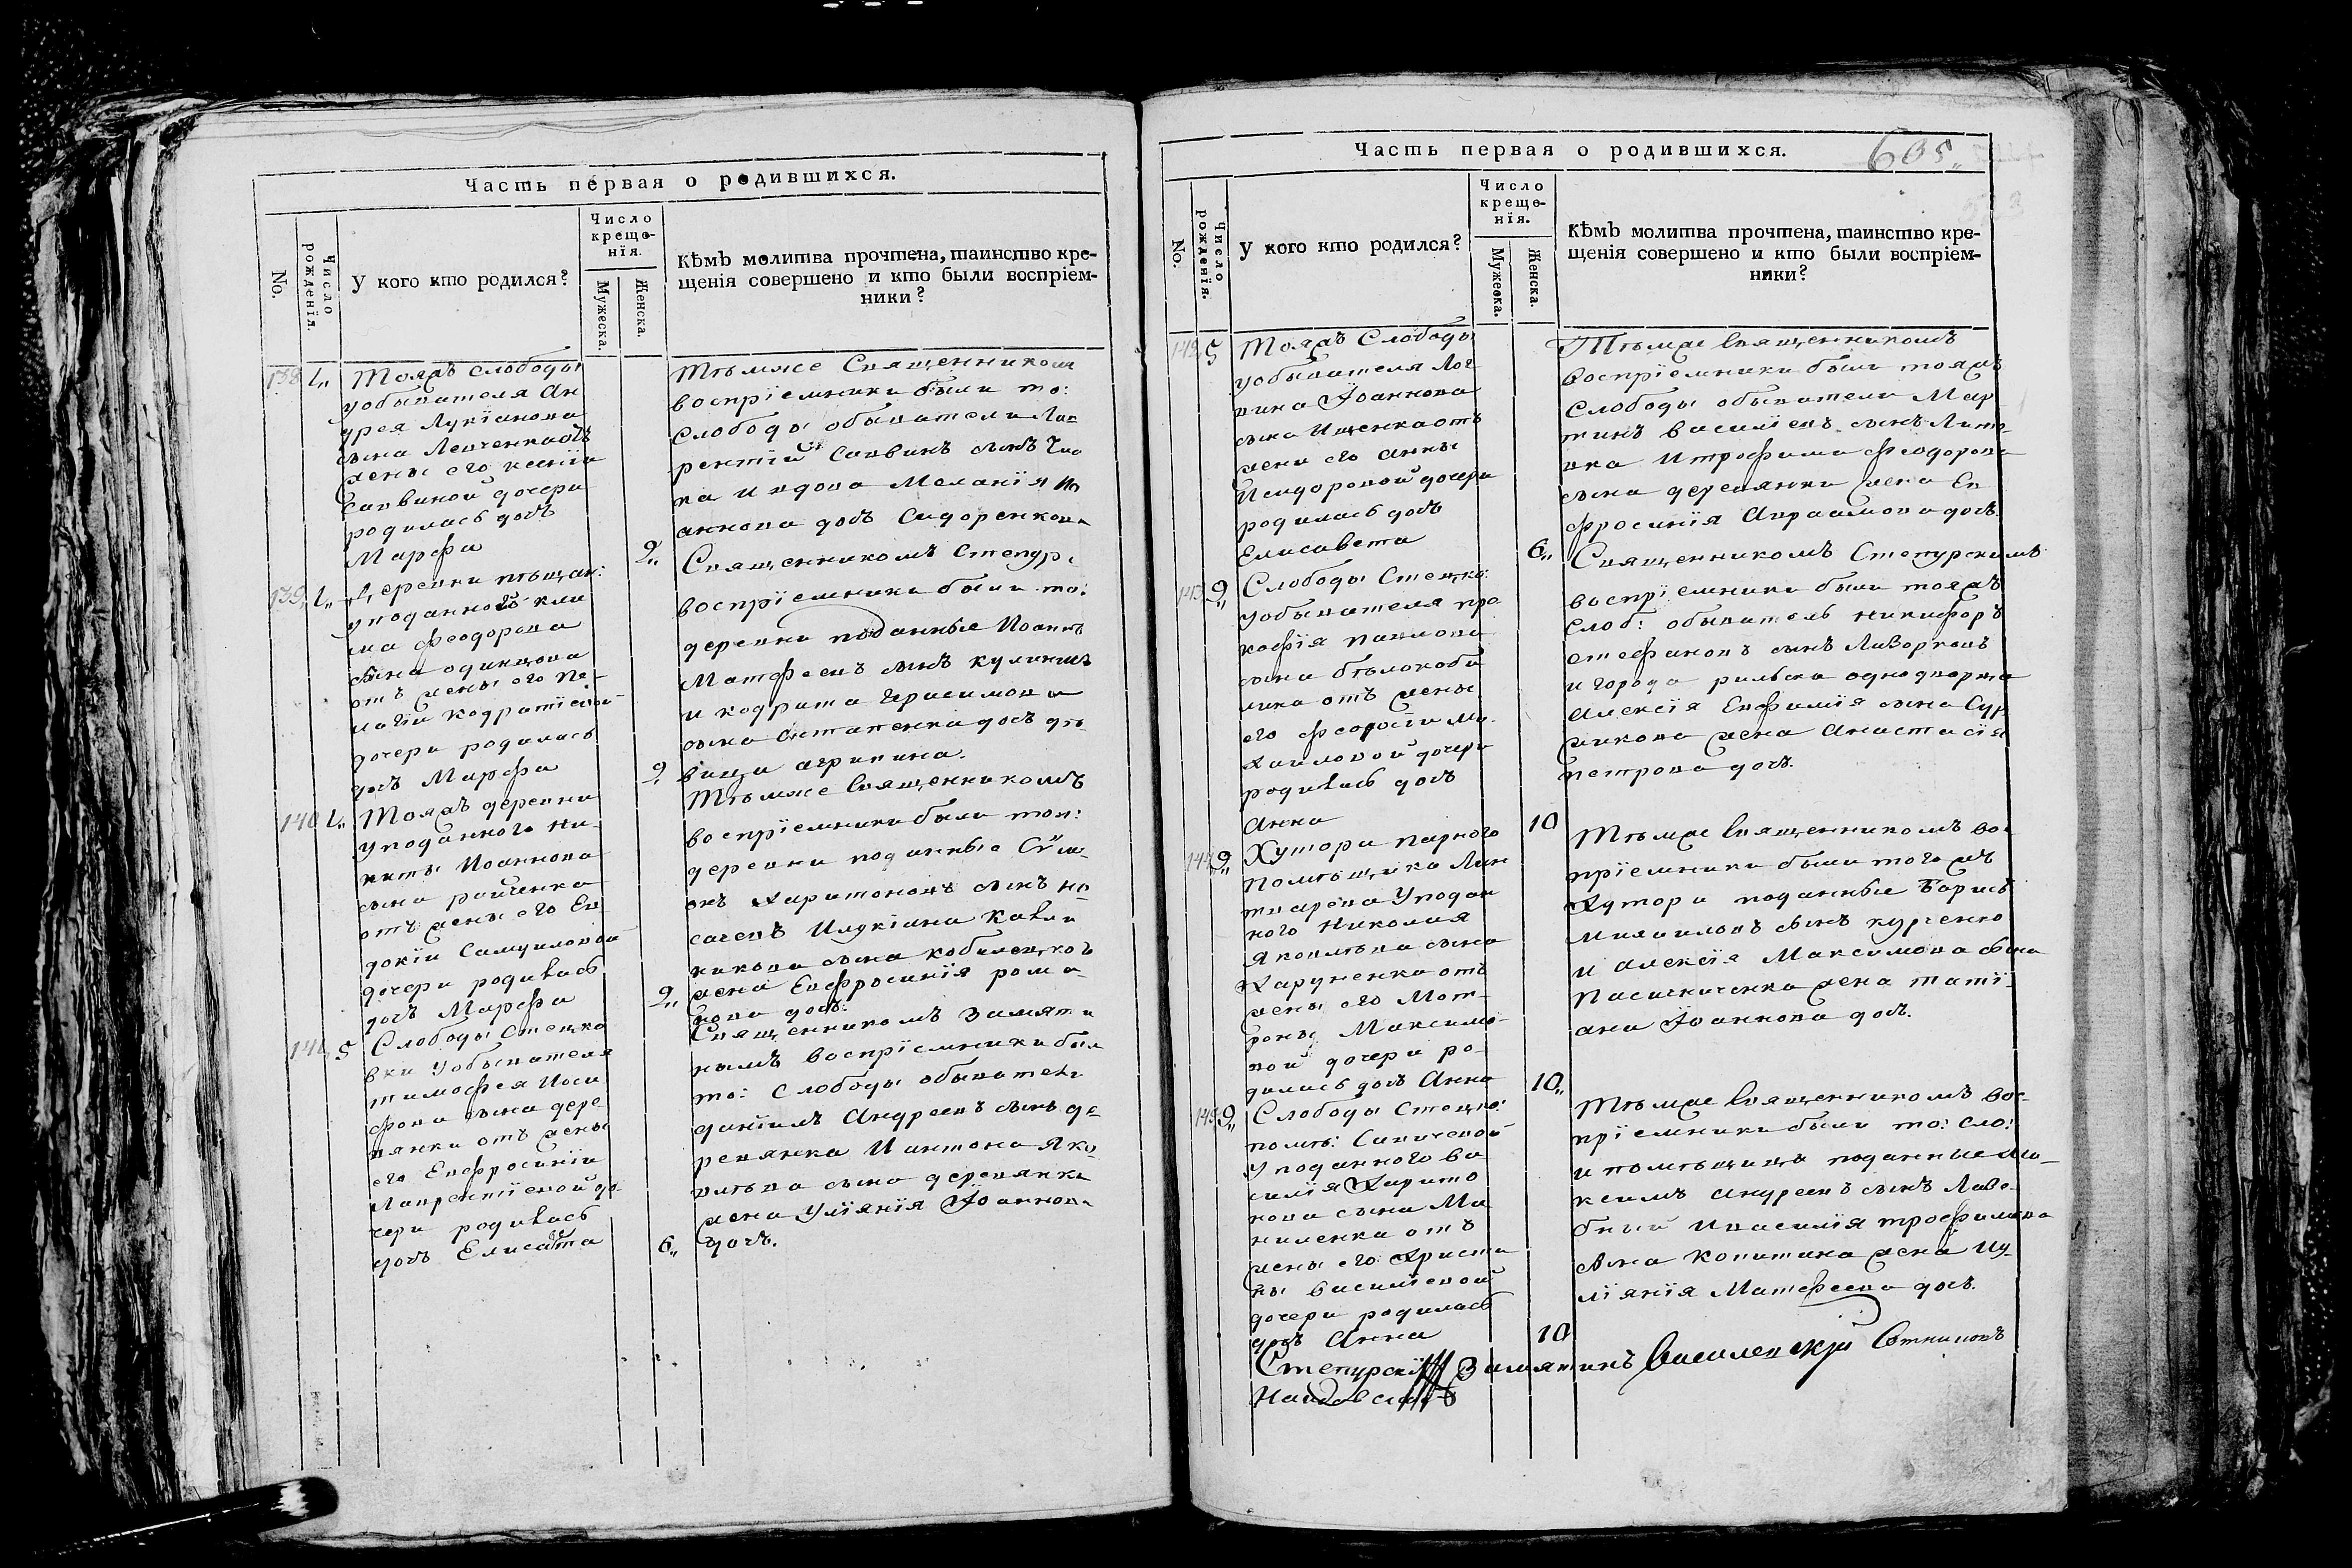 Часть первая о родившихся.
No.
Число рожденія.
У кого кто родился?
Число
креще-
нія.
Мужеска.
Женска.
Кѣмъ молитва прочтена, таинство кре-
щенія совершено и кто были воспріем-
ники?
138
Тояжъ слободы
уобывателя Ан
дрея Лукіанова
сына Левченка отъ
жены его ксеніи
Саввиной дочери
родилась дочь
Марфа
2„
Тѣмже Священником
воспріемники были то:
слободы обыватели Лав
рентій Саввинъ сынъ
и вдова Меланія Ио
аннова дочь Сидоренкова
139
Деревни
уподанного кли
ма Феодорова
сына одинцова
отъ жены его Пе-
лагіи кодратіевой
дочери родилась
дочь Марфа
2
Священникомъ Степур:
воспріемники были то:
деревни поданные Иоаннъ
Матфеевъ сынъ кулиничъ
и кодрата Герасимова
сына дочь дѣ-
вица агрипина.
140
Тояжъ деревни
уподанного Ни-
киты Иоаннова
сына
отъ жены его Ев
докіи Самуиловой
дочери родилась
дочь Марфа
2„
Тѣмже Священникомъ
воспріемники были тоя:
деревни поданные Сѵме-
онъ Харитоновъ сынъ но-
сачевъ Илукіана
сына
жена Евфросинія рома
нова дочь.
141
5
Слободы Стецко
вки уобывателя
тимофея Иоси
фова сына дере
вянки отъ жены
его Евфросиніи
Лаврентіевой до-
чери родилась
дочь Елисавета
6„
Священникомъ Замяти
нымъ воспріемники был
то: слободы обыватели
даніилъ Андреевъ сынъ де-
ревянка И антона Яко
влѣва сына деревянки
жена Уліянія Іоаннова
дочь.
Часть первая о родившихся.
605„
No.
Число рожденія.
У кого кто родился?
Число
креще-
нія.
Мужеска.
Женска.
Кѣмъ молитва прочтена, таинство кре-
щенія совершено и кто были воспріем-
ники?
142
5
Тояжъ Слободы
уобывателя Лог
вина Іоаннова
сына Ищенка отъ
жени его анны
Исидоровой дочери
родилась дочь
Елисавета
6„
Тѣмже Священникомъ
воспріемники были тояжъ
Слободы обыватели Мар
тинъ василіевъ сынъ
Итрофима феодорова
сына деревянки жена Ев
фросинія Авраамова дочь.
143
9„
Слободы Стецко:
уобывателя про
кофія павлова
сына бѣлокоби
лика отъ жены
его феодосіи Ми-
хаиловой дочери
родилась дочь
Анна
10
Священникомъ Степурскимъ
воспріемники были тояжъ
Слоб: обыватель никифоръ
стефановъ сынъ
и города рильска однодворца
Алексія Евфимія сына
жена Анастасія
петрова дочь.
144
9„
Хутора парного
помѣщика
Уподан
ного Николая
Яковлѣва сына
отъ
жены его Мот-
роны Максимо-
вой дочери ро-
дилась дочь Анна
10„
Тѣмже Священникомъ вос
пріемники были того жъ
хутора поданные Борисъ
михаиловъ сынъ курченко
и алексія Максимова сына
Пасичниченка жена тати-
ана Іоаннова дочь.
145
9„
Слободы Стецко:
помѣ: Савичевой
Уподанного Ва
силія Харито
нова сына Ма
ниленка отъ
жены его Христи
ны василіевой
дочери родилась
дочь Анна
10
Тѣмже Священникомъ вос-
пріемники были то: сло:
и помѣщицы поданние Ма-
ксимъ андреевъ сынъ
Ивасилія трофимова
сына Копитина жена Иу-
ліянія Матфеева дочь.
Степурскій Замятинъ Василевскій Сотниковъ